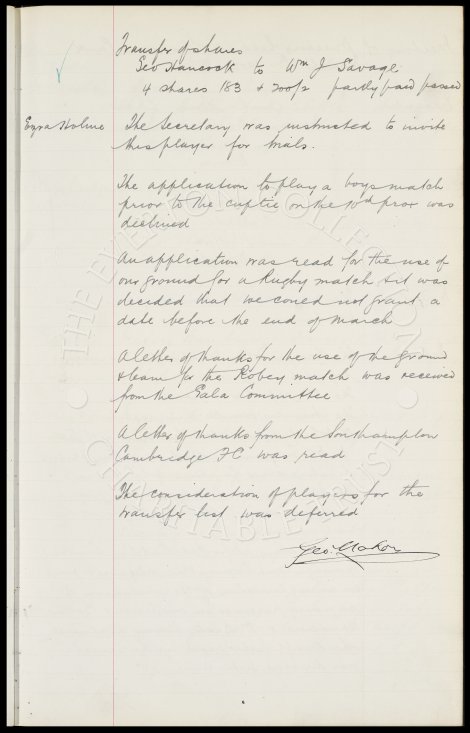 Transfer of shares
Geo Hancock to Wm J Savage
4 shares 183 & 200/2 partly paid passed
Ezra Holme
The Secretary was instructed to invite
this player for trials.
The application to play a boys match
prior to the cuptie on the prox was
declined
An application was read for the use of
our ground for a Rugby match & it was
decided that we could not grant a
date before the end of March
A letter of thanks for the use of the ground
& team for the Robey match was received
from the Gala Committee
A letter of thanks from the Southampton
Cambridge FC was read
The consideration of players for the
transfer list was deferred
Geo. Mahon
THE EVERTON COLLECTION
CHARITABLE TRUST